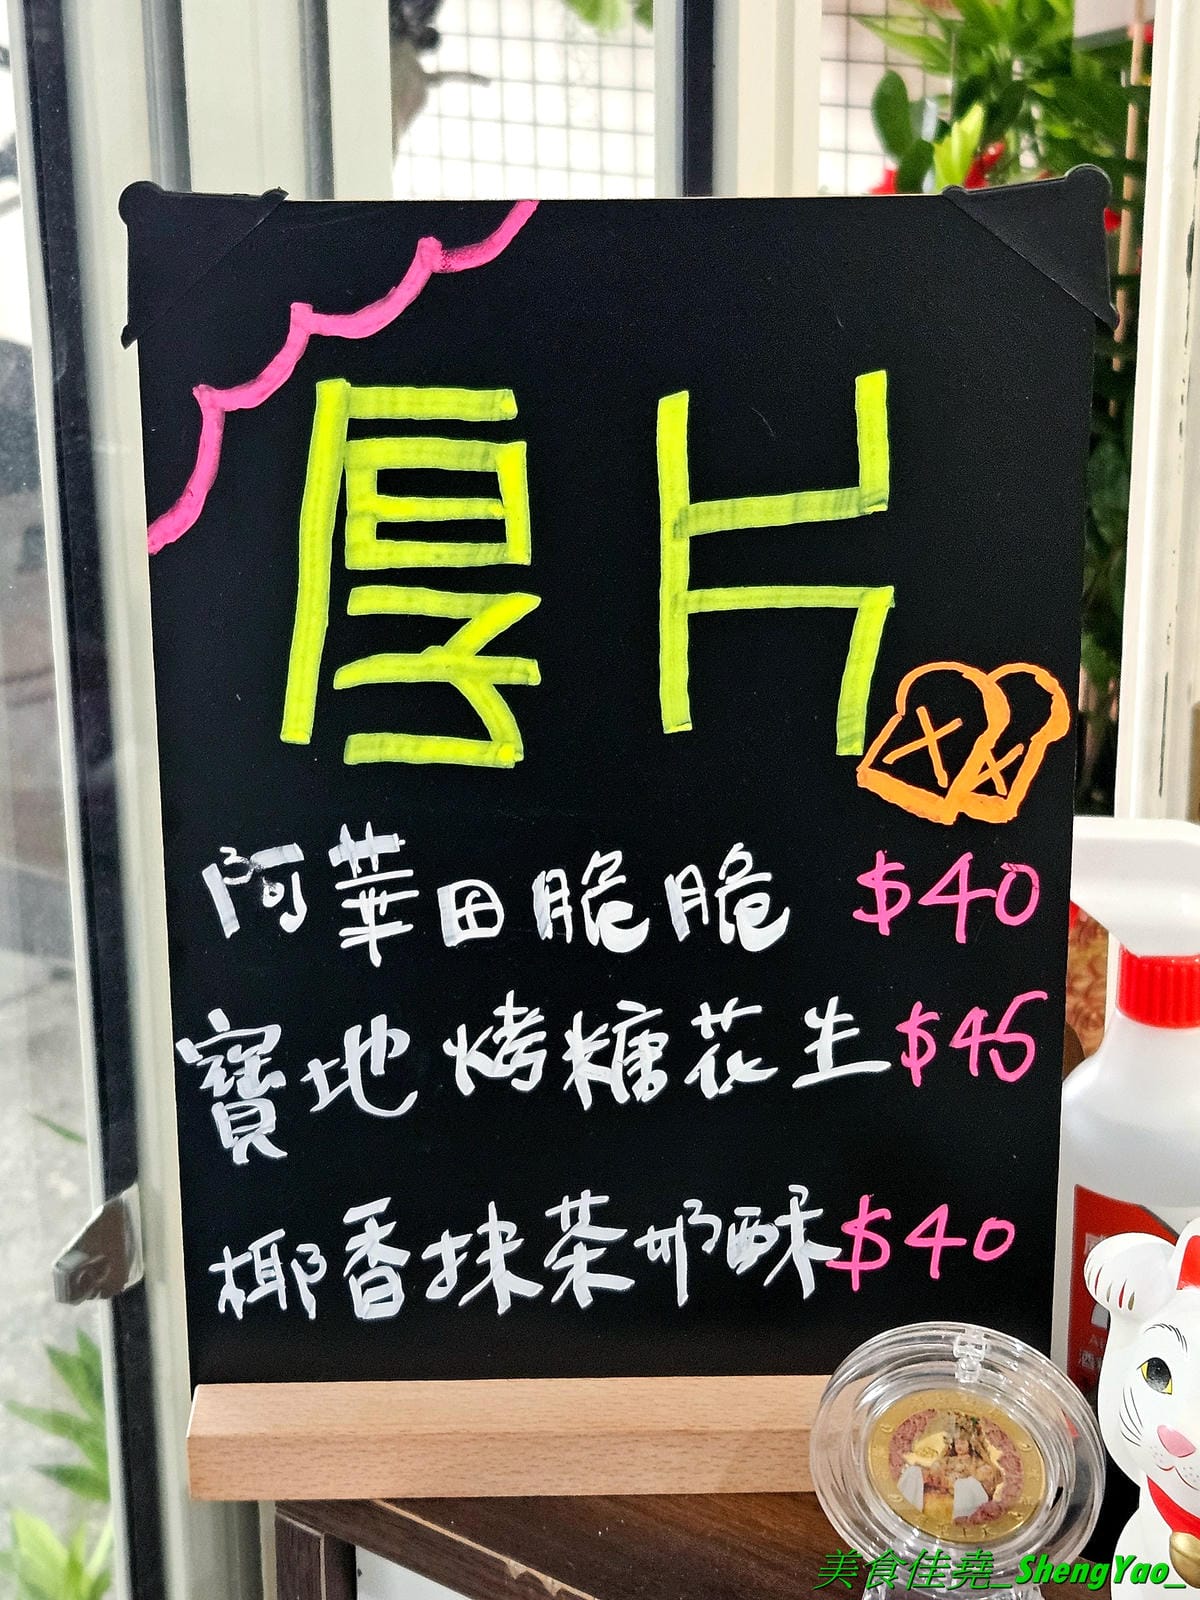 厚片
阿華田脆脆 $40
寶地烤糖花生 $45
椰香抹茶奶酥 $40
美食佳堯_ShengYao_